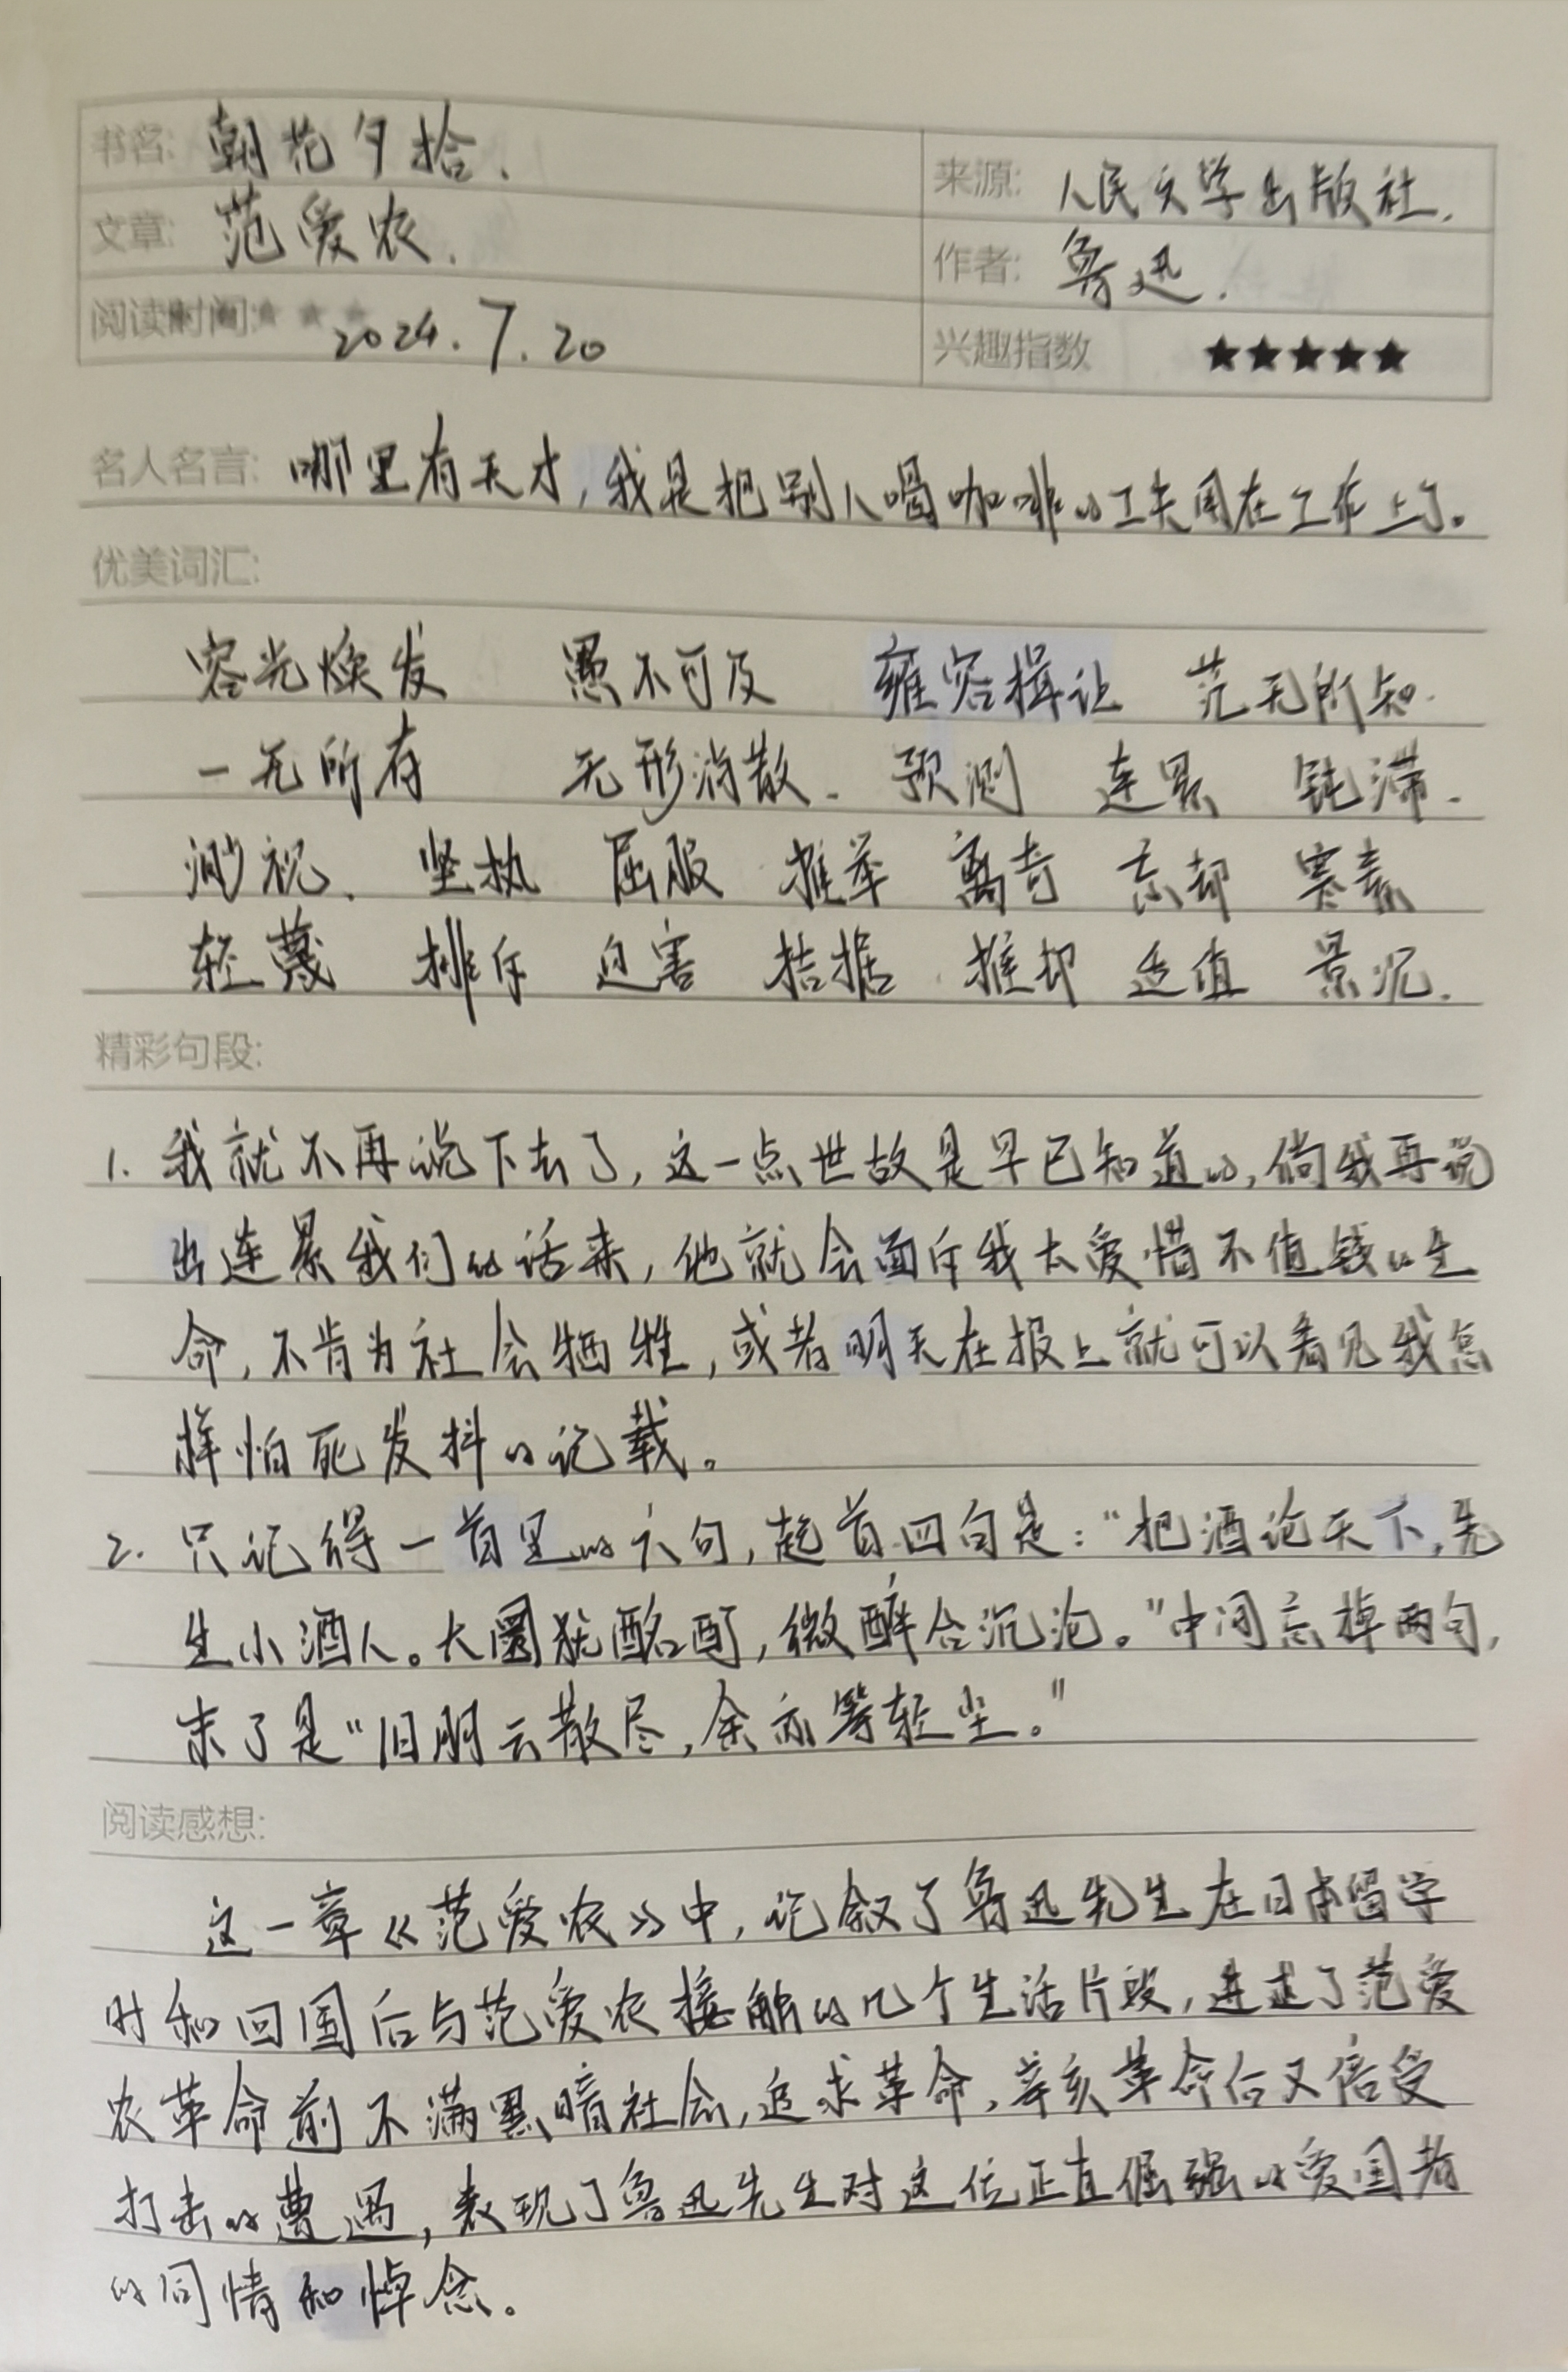 书名: 朝花夕拾.
来源: 人民文学出版社.
文章: 范爱农.
作者: 鲁迅.
阅读时间: 2024.7.20
兴趣指数 ★★★★★
名人名言: 哪里有天才,我是把别人喝咖啡的工夫用在工作上了。
优美词汇:
容光焕发 愚不可及 雍容揖让 茫无所知.
一无所有 无形消散. 预测 连累 钝滞.
渺视. 坚执 屈服 推举 离奇 忘却 寒素
轻蔑 排斥 迫害 拮据 推却 适值 景况.
精彩句段:
1. 我就不再说下去了,这一点世故是早已知道的,倘我再说
出连累我们的话来,他就会面斥我太爱惜不值钱的生
命,不肯为社会牺牲,或者明天在报上就可以看见我怎
样怕死发抖的记载。
2. 只记得一首里的六句,起首四句是:“把酒论天下,先
生小酒人。大圜犹酩酊,微醉合沉沦。”中间忘掉两句,
末了是“旧朋云散尽,余亦等轻尘。”
阅读感想:
这一章《范爱农》中,记叙了鲁迅先生在日本留学
时和回国后与范爱农接触的几个生活片段,讲述了范爱
农革命前不满黑暗社会,追求革命,辛亥革命后又倍受
打击的遭遇,表现了鲁迅先生对这位正直倔强的爱国者
的同情和悼念。